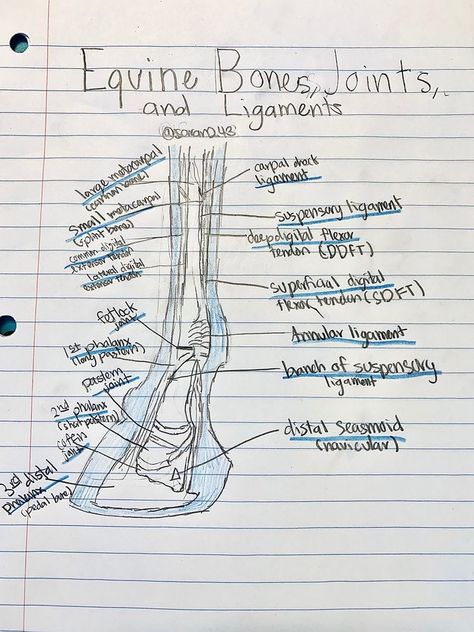 Equine Bones, Joints,
and Ligaments
@sarah248
large metacarpal
(cannon bone)
small metacarpal
(splint bone)
common digital
extensor tendon
lateral digital
extensor tendon
fetlock
joint
1st phalanx
(long pastern)
pastern
joint
2nd phalanx
(short pastern)
coffin
joint
3rd distal
phalanx
(pedal bone)
carpal check
ligament
suspensory ligament
deep digital flexor
tendon (DDFT)
superficial digital
flexor tendon (SDFT)
Annular ligament
banch of suspensory
ligament
distal seasmoid
(navicular)